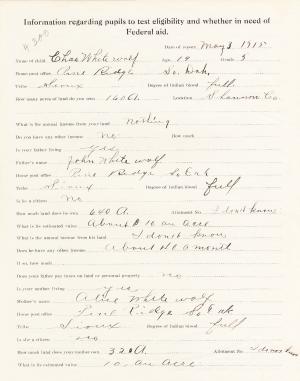 Information regarding pupils to test eligibility and whether in need of
Federal aid.
Date of report May 3, 1915
Name of child Chas White wolf Age 19 Grade 5
Home post office Pine Ridge So. Dak.
Tribe Sioux Degree of Indian blood full
How many acres of land do you own 160 A. Location Shannon Co.
What is the annual income from your land nothing
Do you have any other income No How much
Is your father living Yes
Father's name John White wolf
Home post office Pine Ridge So Dak
Tribe Sioux Degree of Indian blood full
Is he a citizen No
How much land does he own 640 A. Allotment No. I don't know
What is its estimated value About $10 an acre
What is the annual income from his land I don't know
Does he have any other income About $10 a month
If so, how much
Does your father pay taxes on land or personal property no
Is your mother living yes
Mother's name Alice White wolf
Home post office Pine Ridge So Dak
Tribe Sioux Degree of Indian blood full
Is she a citizen no
How much land does your mother own 320 A. Allotment No. I don't know
What is its estimated value 10. an acre